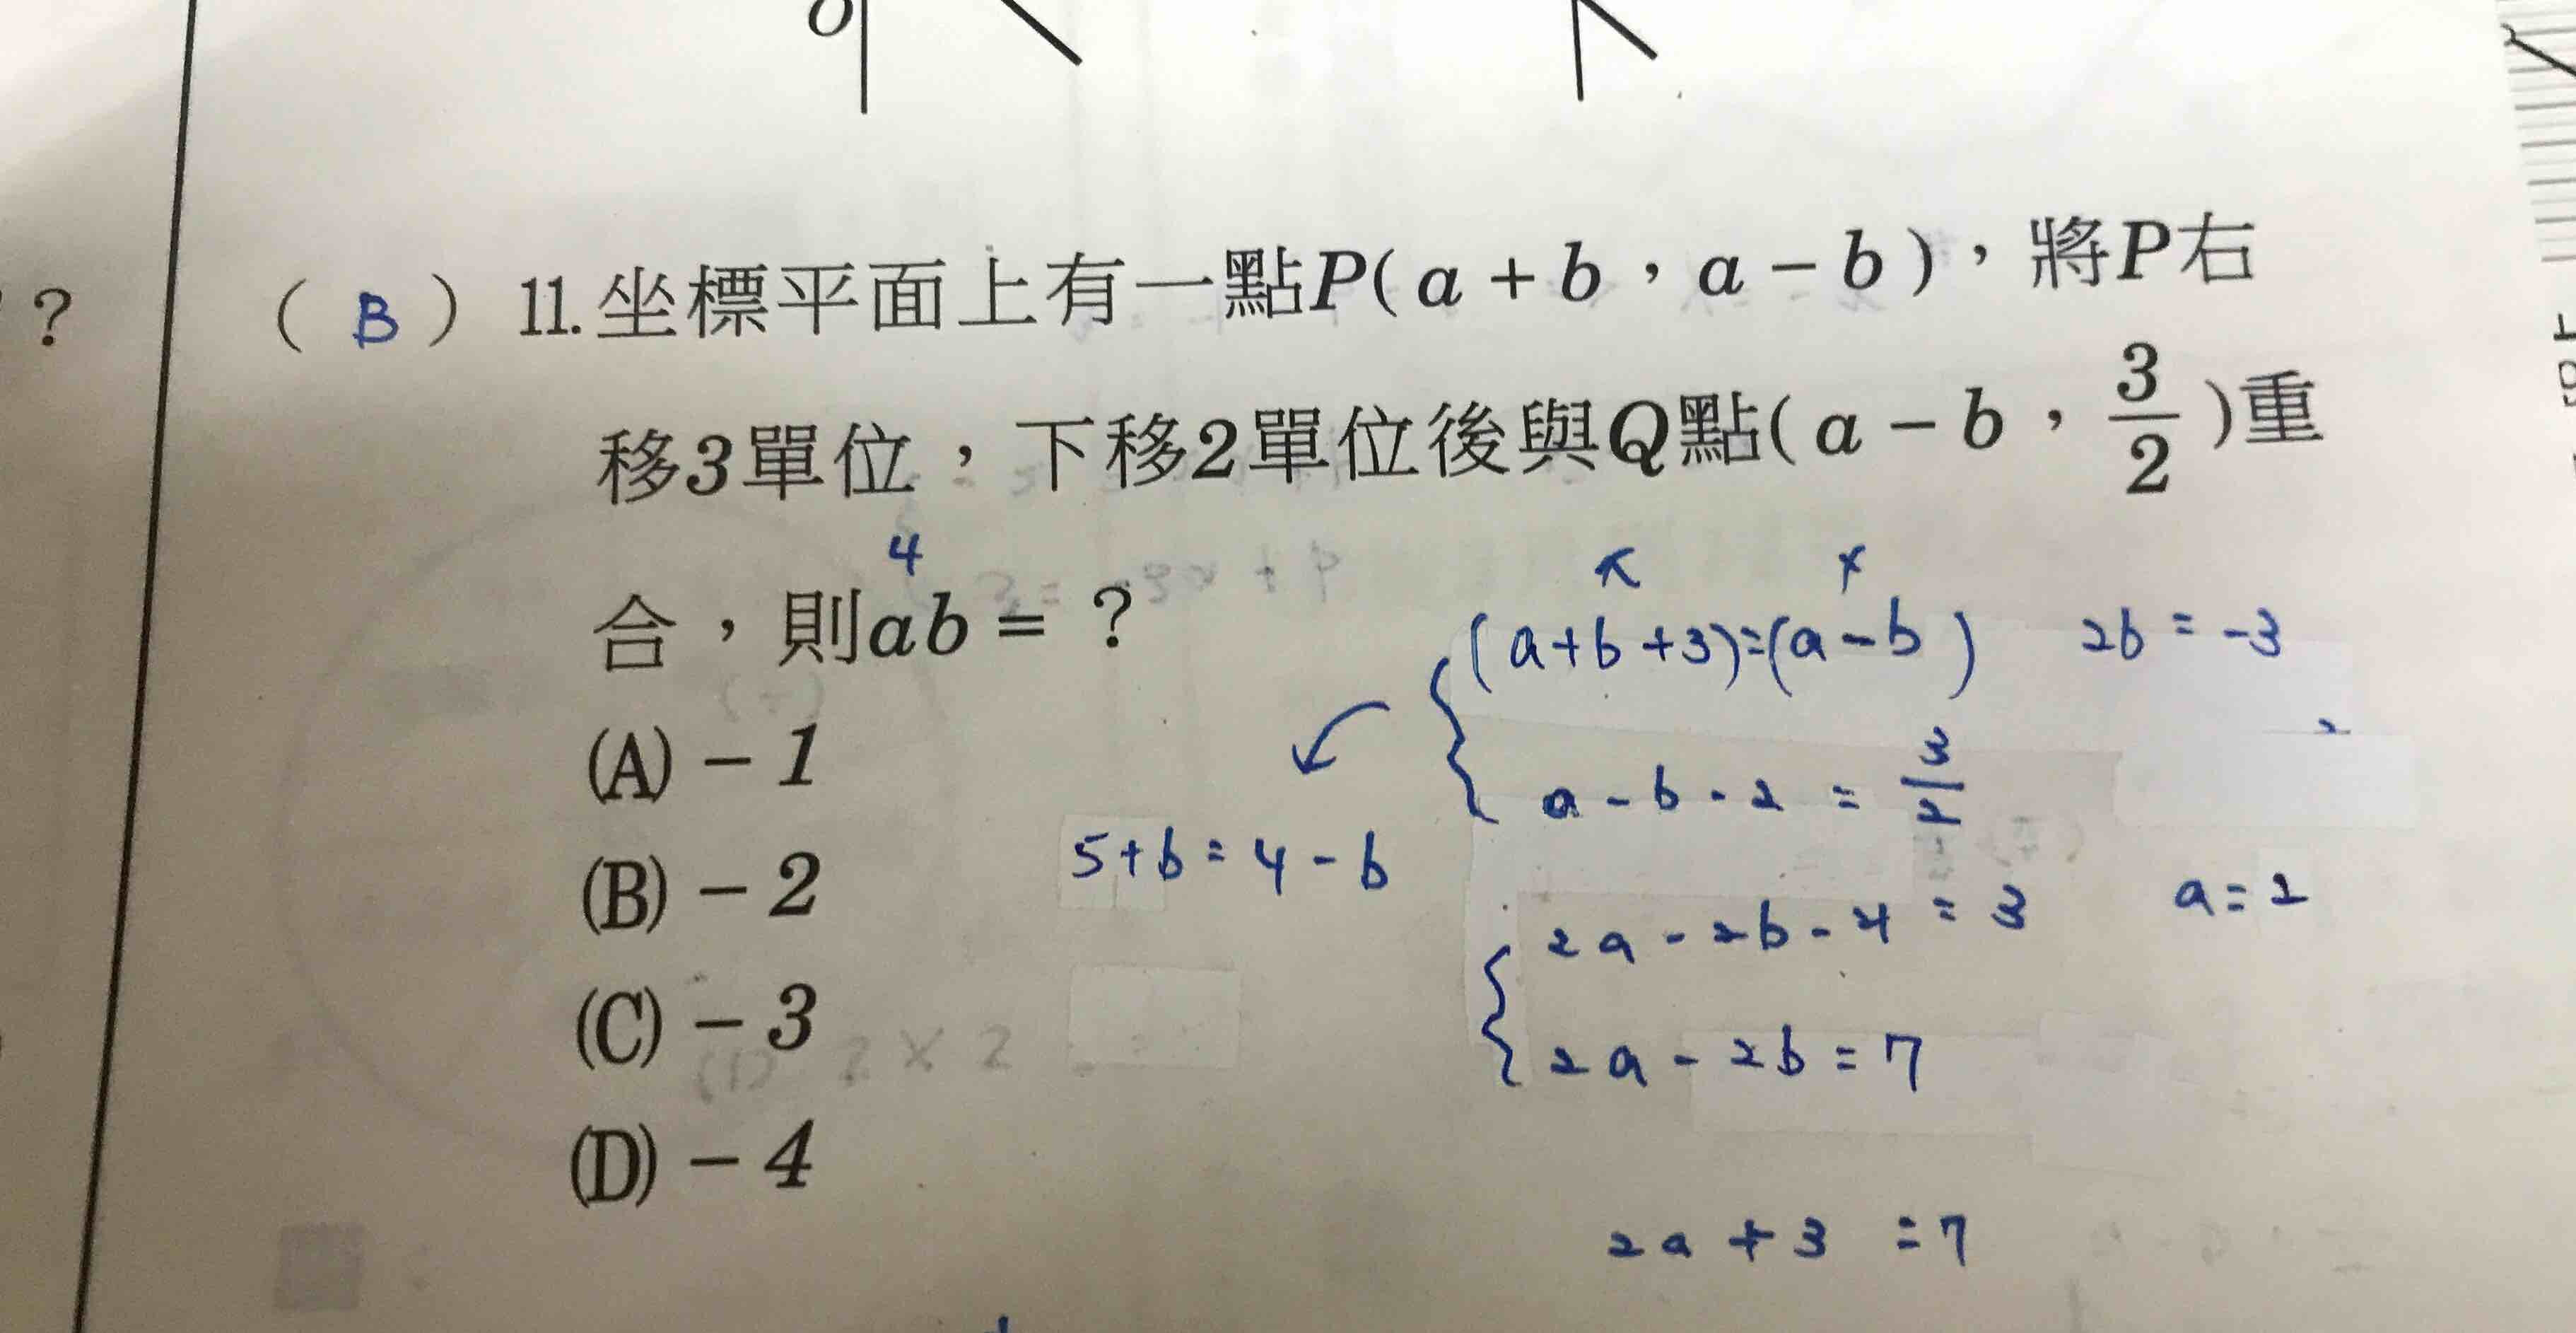 ?
( B ) 11. 坐標平面上有一點P( a + b , a - b ),將P右
移3單位,下移2單位後與Q點( a - b , 3/2 )重
4
合,則ab = ?
(A) - 1
(B) - 2
(C) - 3
(D) - 4
(a+b+3)=(a-b)
2b = -3
a - b - 2 = 3/2
5+b = 4-b
2a - 2b - 4 = 3
a = 2
2a - 2b = 7
2a + 3 = 7